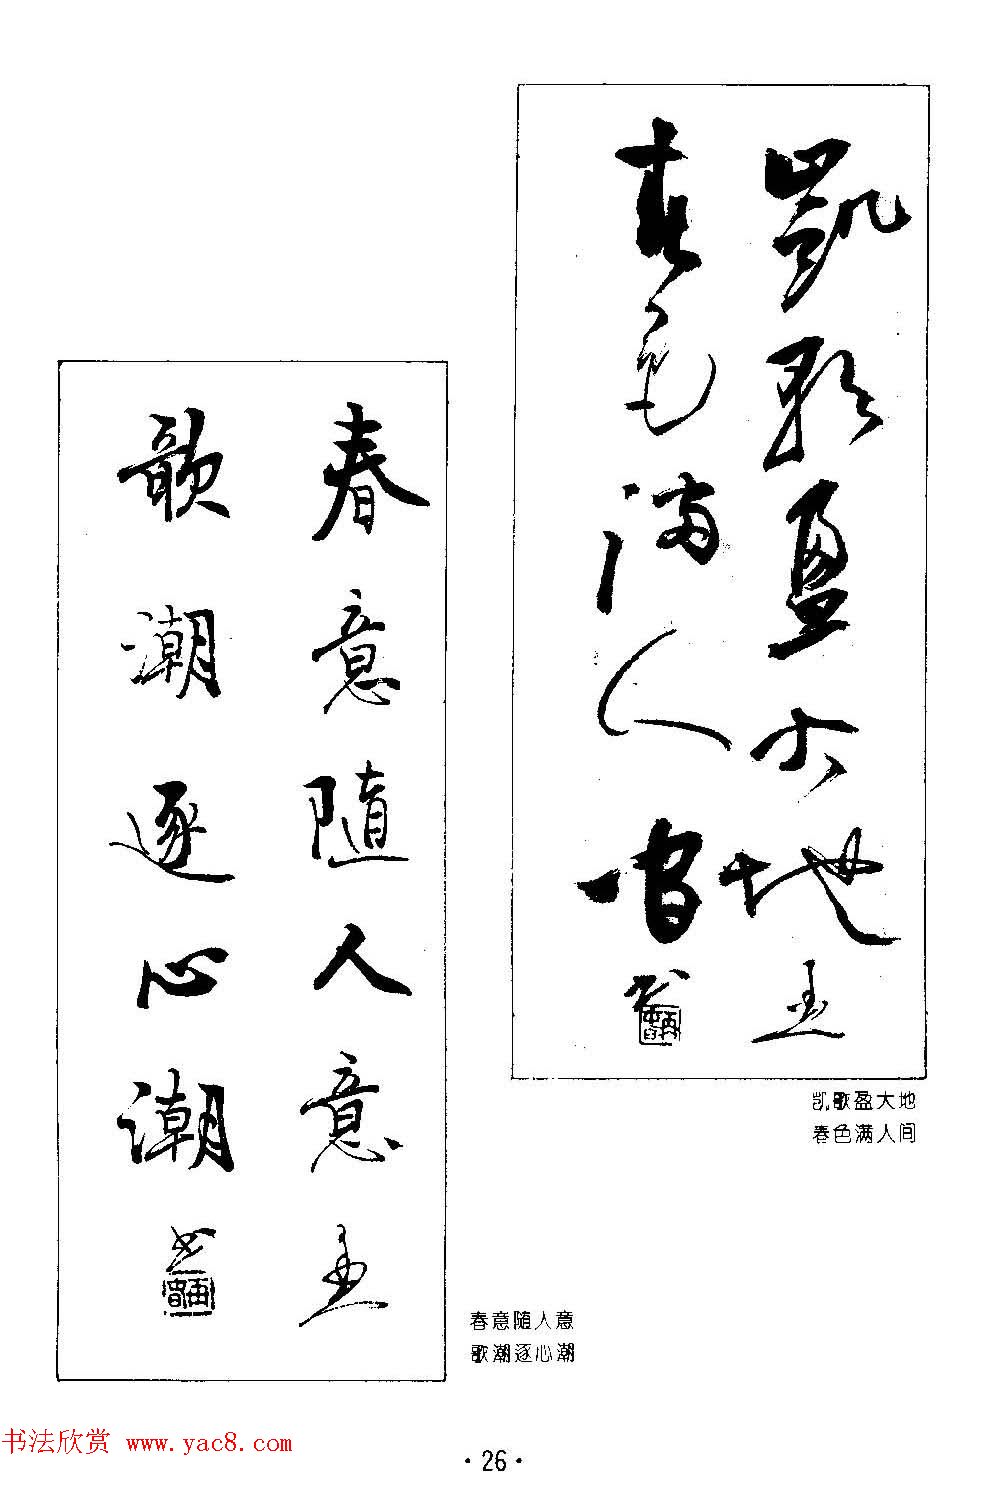 凯歌盈大地
春色满人间
凯歌盈大地
春色满人间
春意随人意
歌潮逐心潮
春意随人意
歌潮逐心潮
书法欣赏 www.yac8.com
·26·